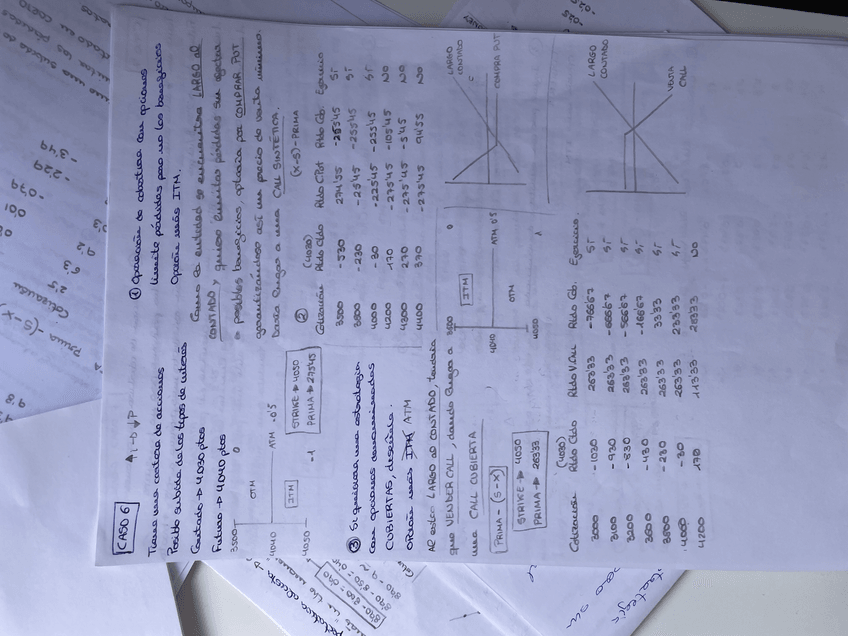 CASO 6
↑i → D ↓P
Tiene una cartera de acciones
Posible subida de los tipos de interés
Contado → 4030 ptos
Futuro → 4040 ptos
3500
0
OTM
4040
ATM -0'5
ITM
4050
-1
STRIKE → 4050
PRIMA → 275'45
① Operación de cobertura con opciones
límite pérdidas pero no los beneficios
Opción más ITM.
Como la entidad se encuentra LARGO AL
CONTADO y quiere limitar pérdidas sin
a posibles beneficios, optaría por COMPRAR PUT
garantizándose así un precio de venta mínimo.
Dará lugar a una CALL SINTÉTICA.
② (4030) (X-S)-PRIMA
Cotización Rldo Ctdo Rldo C.Put Rldo Cb. Ejercicio
3500 -530 274'55 -255'45 SI
3800 -230 -25'45 -255'45 SI
4000 -30 -225'45 -255'45 SI
4200 170 -275'45 -105'45 NO
4300 270 -275'45 -5'45 NO
4400 370 -275'45 94'55 NO
LARGO
CONTADO
COMPRA PUT
③ Si quisiera una estrategia
con opciones denominadas
CUBIERTAS, descríbela.
Opción más ITM ATM
Al estar LARGO AL CONTADO, tendría
que VENDER CALL, dando lugar a
una CALL CUBIERTA
PRIMA - (S-X)
STRIKE → 4050
PRIMA → 263'33
3500
0
ITM
4040
ATM 0'5
OTM
4050
1
(4030)
Cotización Rldo Ctdo Rldo V.Call Rldo Cb. Ejercicio
3000 -1030 263'33 -766'67 SI
3100 -930 263'33 -666'67 SI
3200 -830 263'33 -566'67 SI
3600 -430 263'33 -166'67 SI
3800 -230 263'33 33'33 SI
4000 -30 263'33 233'33 SI
4200 170 113'33 283'33 NO
LARGO
CONTADO
VENTA
CALL
Prima - (S-X)
Cotización
-0'79
-2'29
-3'49